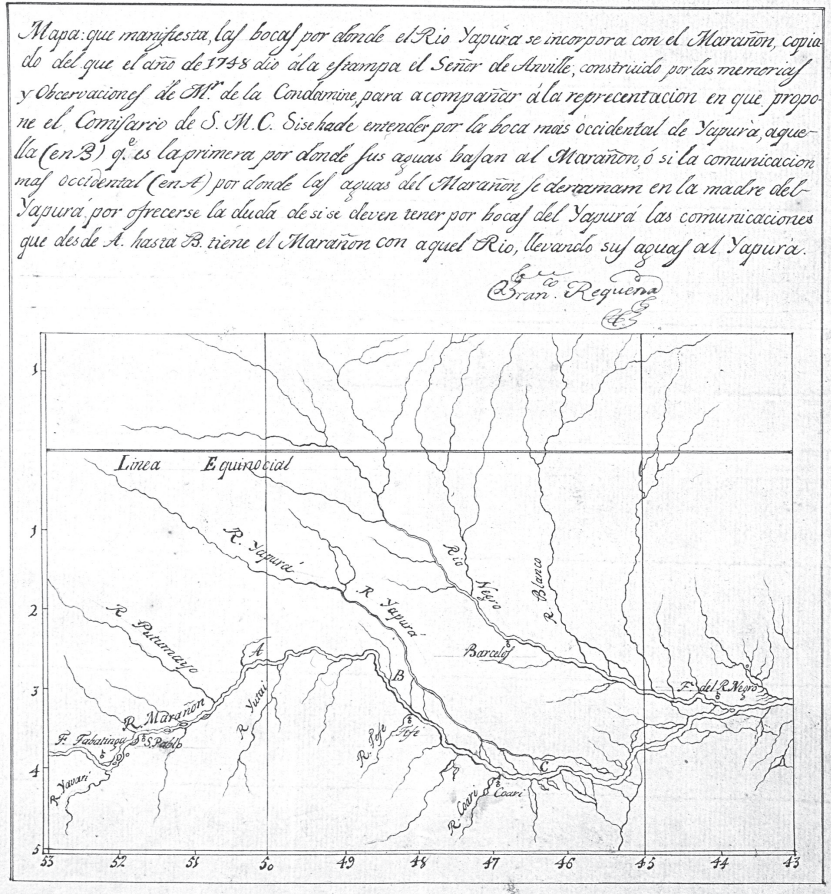 Mapa: que manifiesta, las bocas por donde el Rio Yapúra se incorpora con el Marañon, copia-
do del que el año de 1748 dio ála estampa el Señor de Anville, construido por las memorias
y Observaciones de Mr. de la Condamine, para acompañar á la reprecentacion en que propo-
ne el Comisario de S. M. C. Sisehade entender por la boca mas occidental de Yapurà, aque-
lla (en B) qe. es la primera por donde sus aguas bajan al Marañon, ó si la comunicacion
mas occidental (en A) por donde las aguas del Marañon se derramam en la madre del
Yapurá, por ofrecerse la duda de si se deven tener por bocas del Yapurá las comunicaciones
que desde A. hasta B. tiene el Marañon con aquel Rio, llevando sus aguas al Yapurà.
Franco. Requena
1
Linea Equinocial
1
R. Yapurá
Rio Negro
R. Blanco
R. Yapurá
2
R. Putumayo
A
Barcelos
B
3
R. Yutai
F. del R. Negro
R. Marañon
F. Tabatinga
S. Pablo
R. Tefe
Tefe
4
C
R. Yavari
R. Coari
Coari
5
53 52 51 50 49 48 47 46 45 44 43